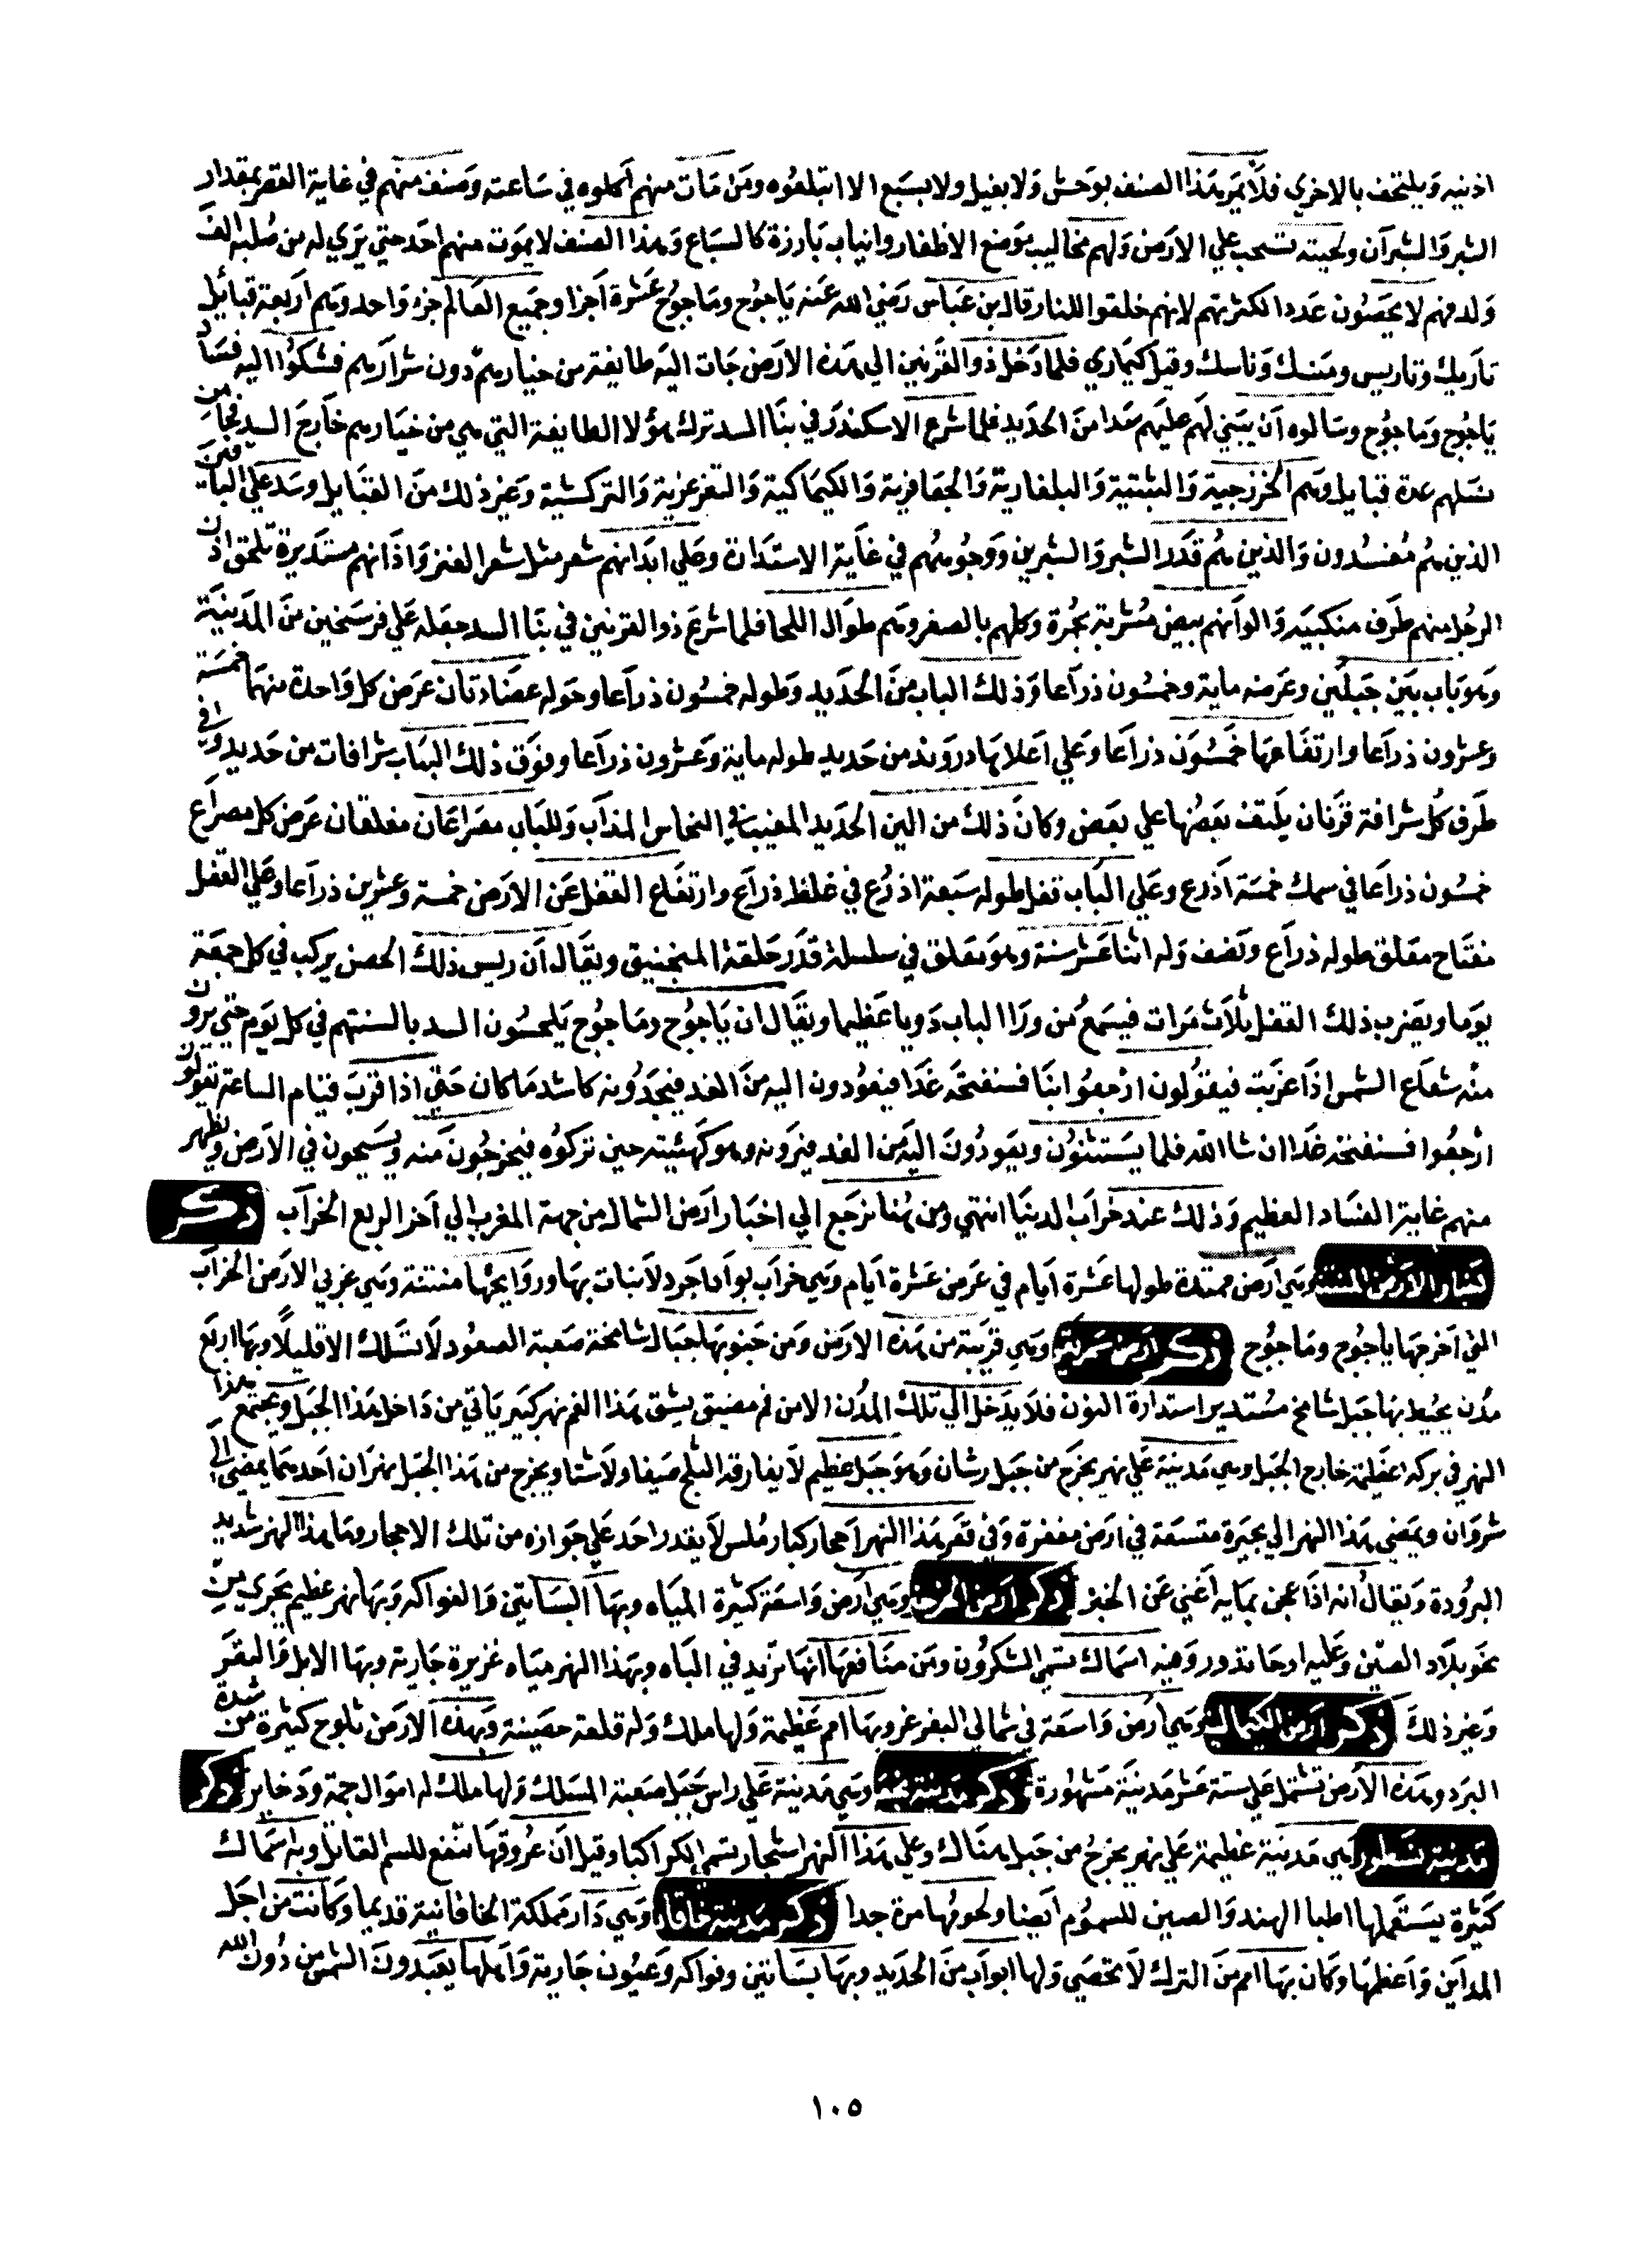 اذنيه ويلتحف بالاخري فلا يمر بهذا الصنف بوحش ولا بفيل ولا بسبع الا ابتلعوه ومن مات منهم اكلوه في ساعته وصنف منهم في غاية القصر بمقدار
الشبر والشبران ولحيته تسحب علي الارض ولهم مخاليب موضع الاظفار وانياب بارزة كالسباع وهذا الصنف لا يموت منهم احد حتي يري له من صلبه الف
ولد فهم لا يحصون عددا لكثرتهم لانهم خلقوا للنار قال بن عباس رضي الله عنه ياجوج وماجوج عشرة اجزا وجميع العالم جزء واحد وهم اربعة قبايل
تاريك وتاريس ومنسك وناسك وقيل كيماري فلما دخل ذو القرنين الي هذه الارض جات اليه طايفة من خيارهم دون شرارهم فشكوا اليه فساد
ياجوج وماجوج وسالوه ان يبني لهم عليهم سدا من الحديد فلما شرع الاسكندر في بنا السد ترك هؤلا الطايفة التي هي من خيارهم خارج السد فجا من
نسلهم عدة قبايل وهم الخزرجية والبثتية والبلغارية والجفافرية والكيماكية والتغزغزية والتركشية وغير ذلك من القبايل وسد علي الباقين
الذين هم مفسدون والذين هم قدر الشبر والشبرين ووجوههم في غاية الاستدارة وعلي ابدانهم شعر مثل شعر العنز واذانهم مستديرة تلحق اذن
الرجل منهم طرف منكبيه والوانهم بيض مشربة بحمرة وكلهم بالصفر وهم طوال اللحا فلما شرع ذو القرنين في بنا السد جعله علي فرسخين من المدينة
وهو باب بين جبلين وعرضه ماية وخمسون ذراعا وذلك الباب من الحديد وطوله خمسون ذراعا وحوله عضادتان عرض كل واحدة منهما خمسة
وعشرون ذراعا وارتفاعها خمسون ذراعا وعلي اعلاها دروند من حديد طوله ماية وعشرون ذراعا وفوق ذلك الباب شرافات من حديد وفي
طرف كل شرافة قرنان يلتف بعضها علي بعض وكان ذلك من الين الحديد المغيب في النحاس المذاب وللباب مصراعان مغلقان عرض كل مصراع
خمسون ذراعا في سمك خمسة اذرع وعلي الباب قفل طوله سبعة اذرع في غلظ ذراع وارتفاع القفل عن الارض خمسة وعشرين ذراعا وعلي القفل
مفتاح مغلق طوله ذراع ونصف وله اثنا عشر سنة وهو معلق في سلسلة قدر حلقة المنجنيق ويقال ان ريس ذلك الحصن يركب في كل جمعة
يوما ويضرب ذلك القفل ثلاث مرات فيسمع من ورا الباب دويا عظيما ويقال ان ياجوج وماجوج يلحسون السد بالسنتهم في كل يوم حتي يرون
منه شعاع الشمس اذا غربت فيقولون ارجعوا بنا فسنفتحه غدا فيعودون اليه من الغد فيجدونه كاشد ما كان حتي اذا قرب قيام الساعة تقولون
ارجعوا فسنفتحه غدا ان شا الله فلما يستثنون ويعودون اليه من الغد فيرونه وهو كهئيته حين تركوه فيخرجون منه ويسيحون في الارض ويظهر
منهم غاية الفساد العظيم وذلك عند خراب الدنيا انتهي ومن هنا نرجع الي اخبار ارض الشمال من جهة المغرب الي اخر الربع الخراب ذكر
اخبار الارض المنتنة وهي ارض ممتدة طولها عشرة ايام في عرض عشرة ايام وهي خراب بوادا جرد لا نبات بها وروايحها منتنة وهي غربي الارض الخراب
التي اخرجها ياجوج وماجوج ذكر ارض وهي قريبة من هذه الارض ومن جنوبها جبال شامخة صعبة الصعود لا تسلك الا قليلا وبها اربع
مدن يحيط بها جبل شامخ مستدير استدارة النون فلا يدخل الي تلك المدن الا من فم مضيق يشق هذا الفم نهر كبير ياتي من داخل هذا الجبل ويجتمع هذا
النهر في بركة عظيمة خارج الجبل وهي مدينة علي نهر يخرج من جبل رشان وهو جبل عظيم لا يفارقه الثلج صيفا ولا شتا ويخرج من هذا الجبل نهران احدهما يمضي الي
شروان ويمضي هذا النهر الي بحيرة متسعة في ارض مغفرة وفي قعر هذا النهر احجار كبار ملس لا يقدر احد علي جوازه من تلك الاحجار وما هذا النهر شديد
البرودة ويقال انه اذا عجن بمايه اغني عن الخبز ذكر ارض وهي ارض واسعة كثيرة المياه وبها البساتين والفواكه وبها نهر عظيم يجري من
نحو بلاد الصين وعليه ارحا تدور وفيه اسماك تسمي الشكرون ومن منافعها انها تزيد في الباه وبهذا النهر مياه غزيرة جارية وبها الابل والبقر
وغير ذلك ذكر ارض الكيماك وهي ارض واسعة في شمالي البغرغر وبها امم عظيمة ولها ملك وله قلعة حصينة وبهذه الارض ثلوج كثيرة من شدة
البرد وهذه الارض تشتمل علي ستة عشر مدينة مشهورة ذكر مدينة وهي مدينة علي راس جبل صعبة المسلك ولها ملك له اموال جمة ودخاير ذكر
مدينة وهي مدينة عظيمة علي نهر يخرج من جبل هناك وعلي هذا النهر اشجار تسمي الكراكبا وقيل ان عروقها تنفع للسم القاتل وبه اسماك
كثيرة يستعملها اطبا الهند والصين للسموم ايضا ولحومها مرة جدا ذكر مدينة خاقان وهي دار مملكة الخاقانية قديما وكانت من اجل
المداين واعظمها وكان بها امم من الترك لا تحصي ولها ابواب من الحديد وبها بساتين وفواكه وعيون جارية واهلها يعبدون الشمس من دون الله
١٠٥